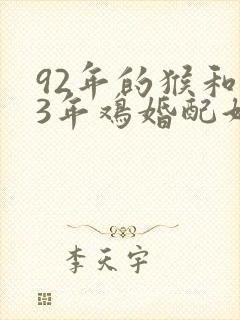 92年的猴和
3年鸡婚配
李天宇